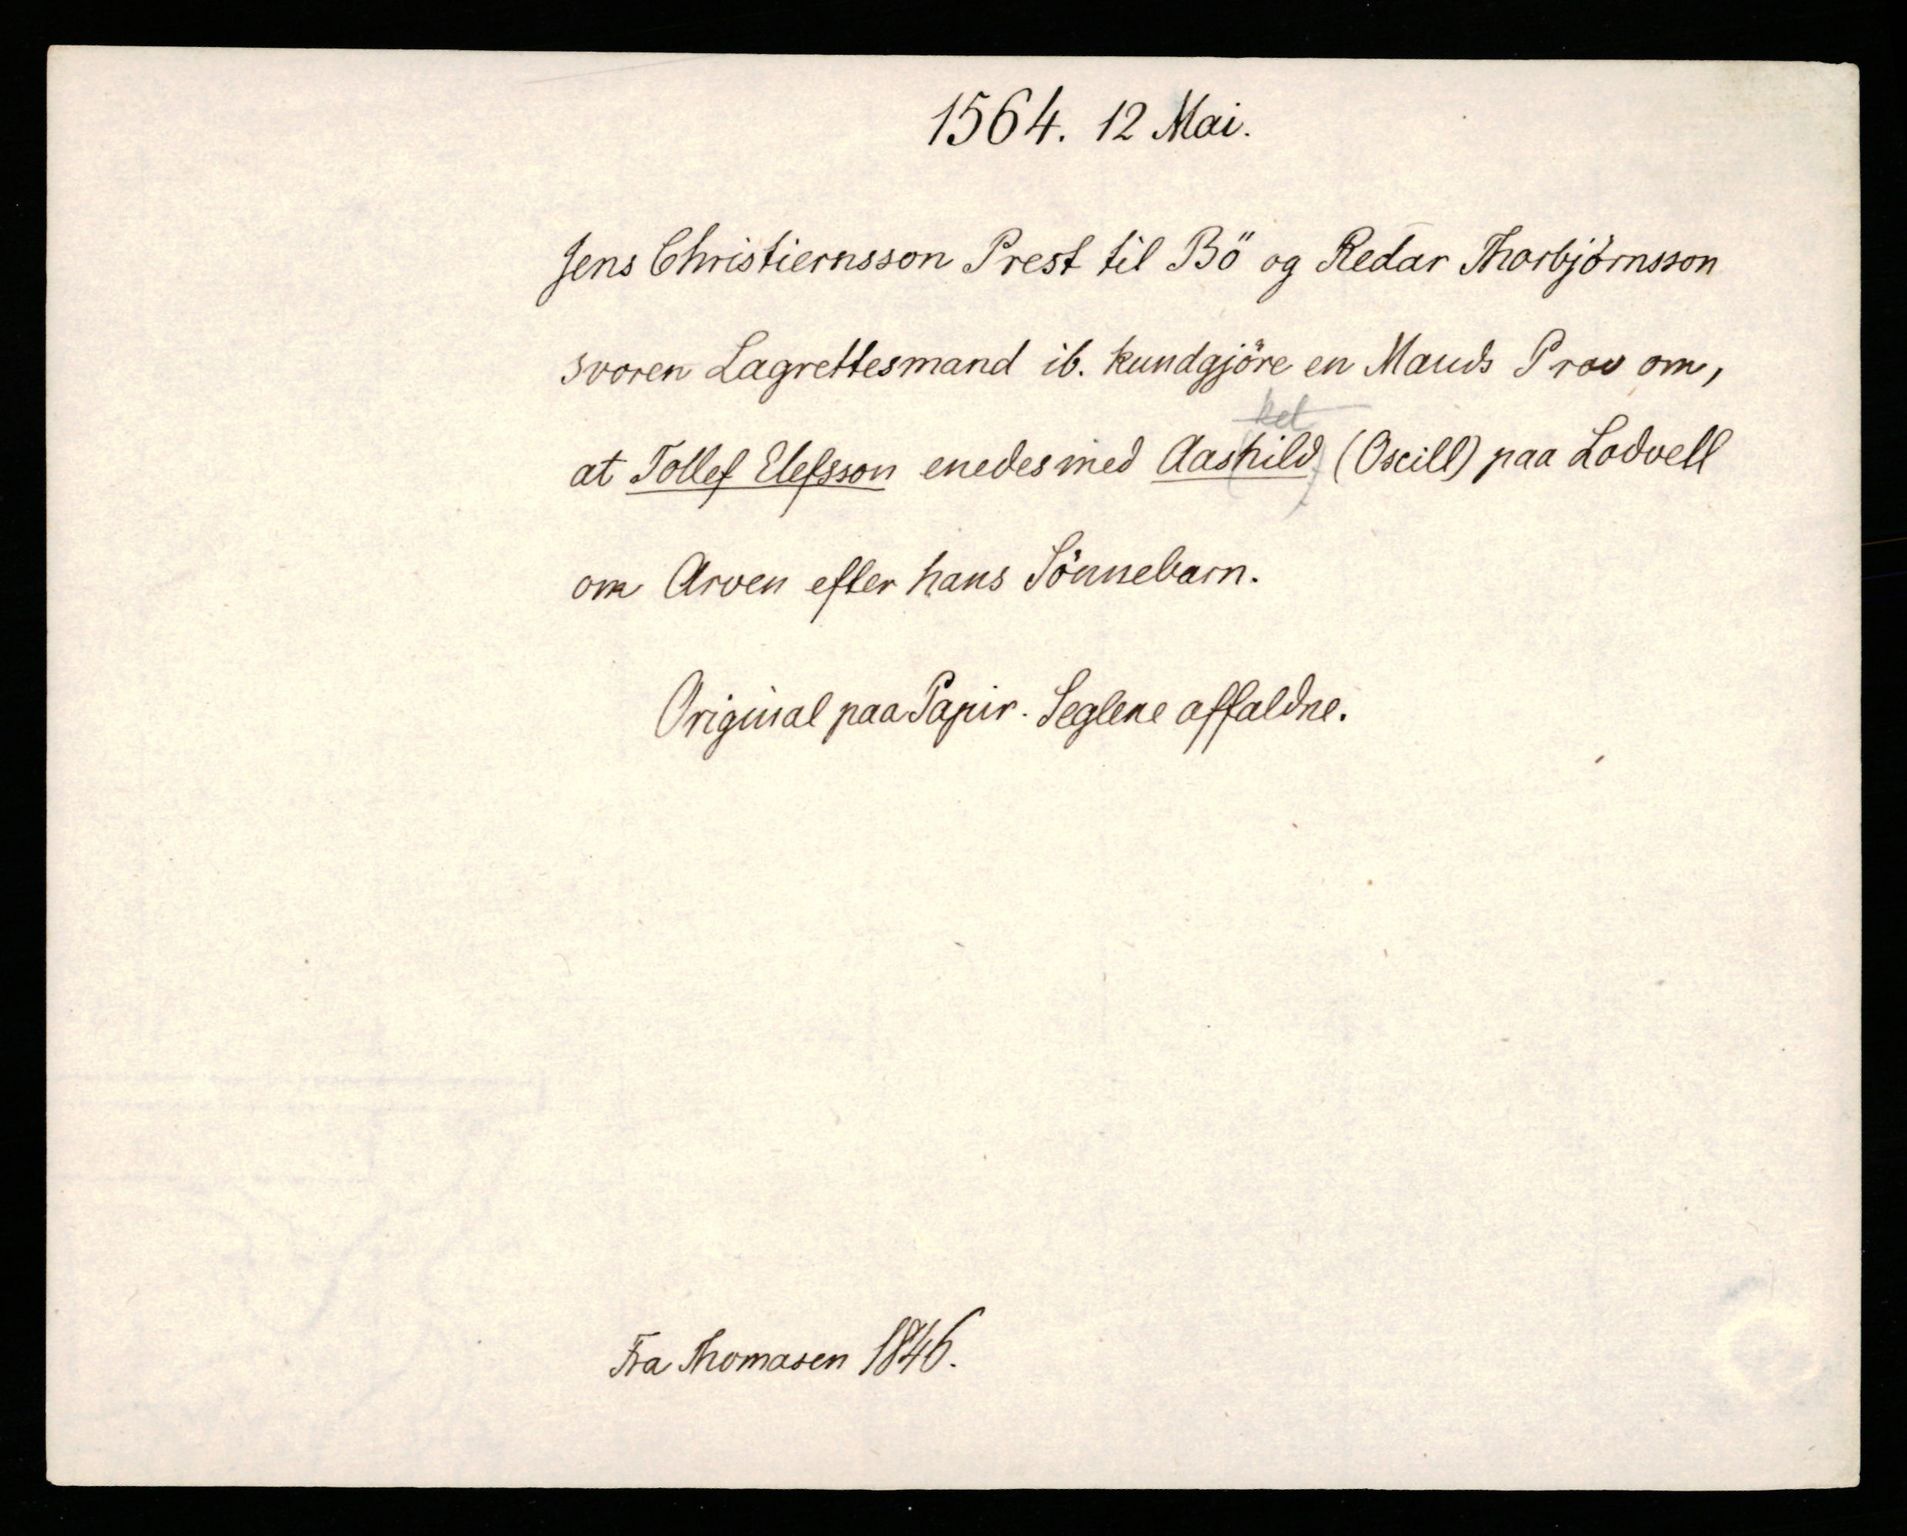 1564. 12 Mai.
Jens Christiernsson Prest til Bö og Redar Thorbjörnsson
svoren Lagrettesmand ib. kundgjöre en Mands Prov om,
ket
at Tollef Elefsson enedes med Aashild (Oscill) paa Lodvell
om Arven efter hans Sönnebarn.
Original paa Papir. Seglene affaldne.
Fra Thomasen 1846.